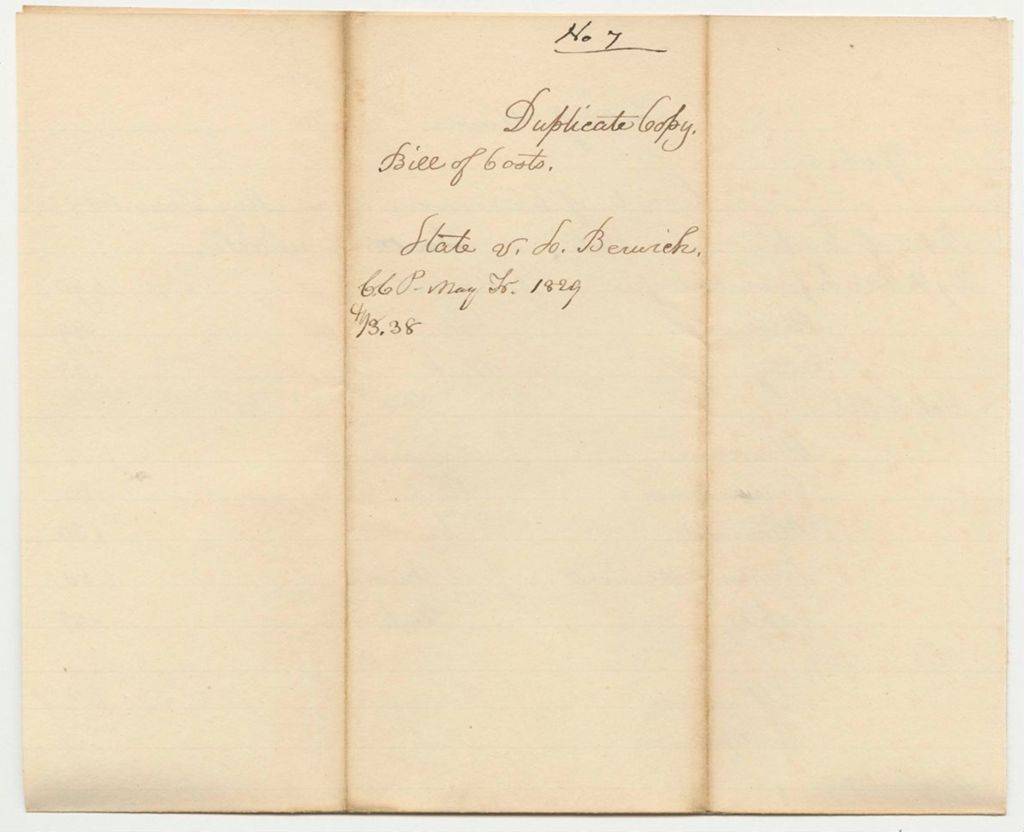 No 7
Duplicate Copy.
Bill of Costs.
State v. So. Berwick.
C.C.P. May Tr. 1829
3.38